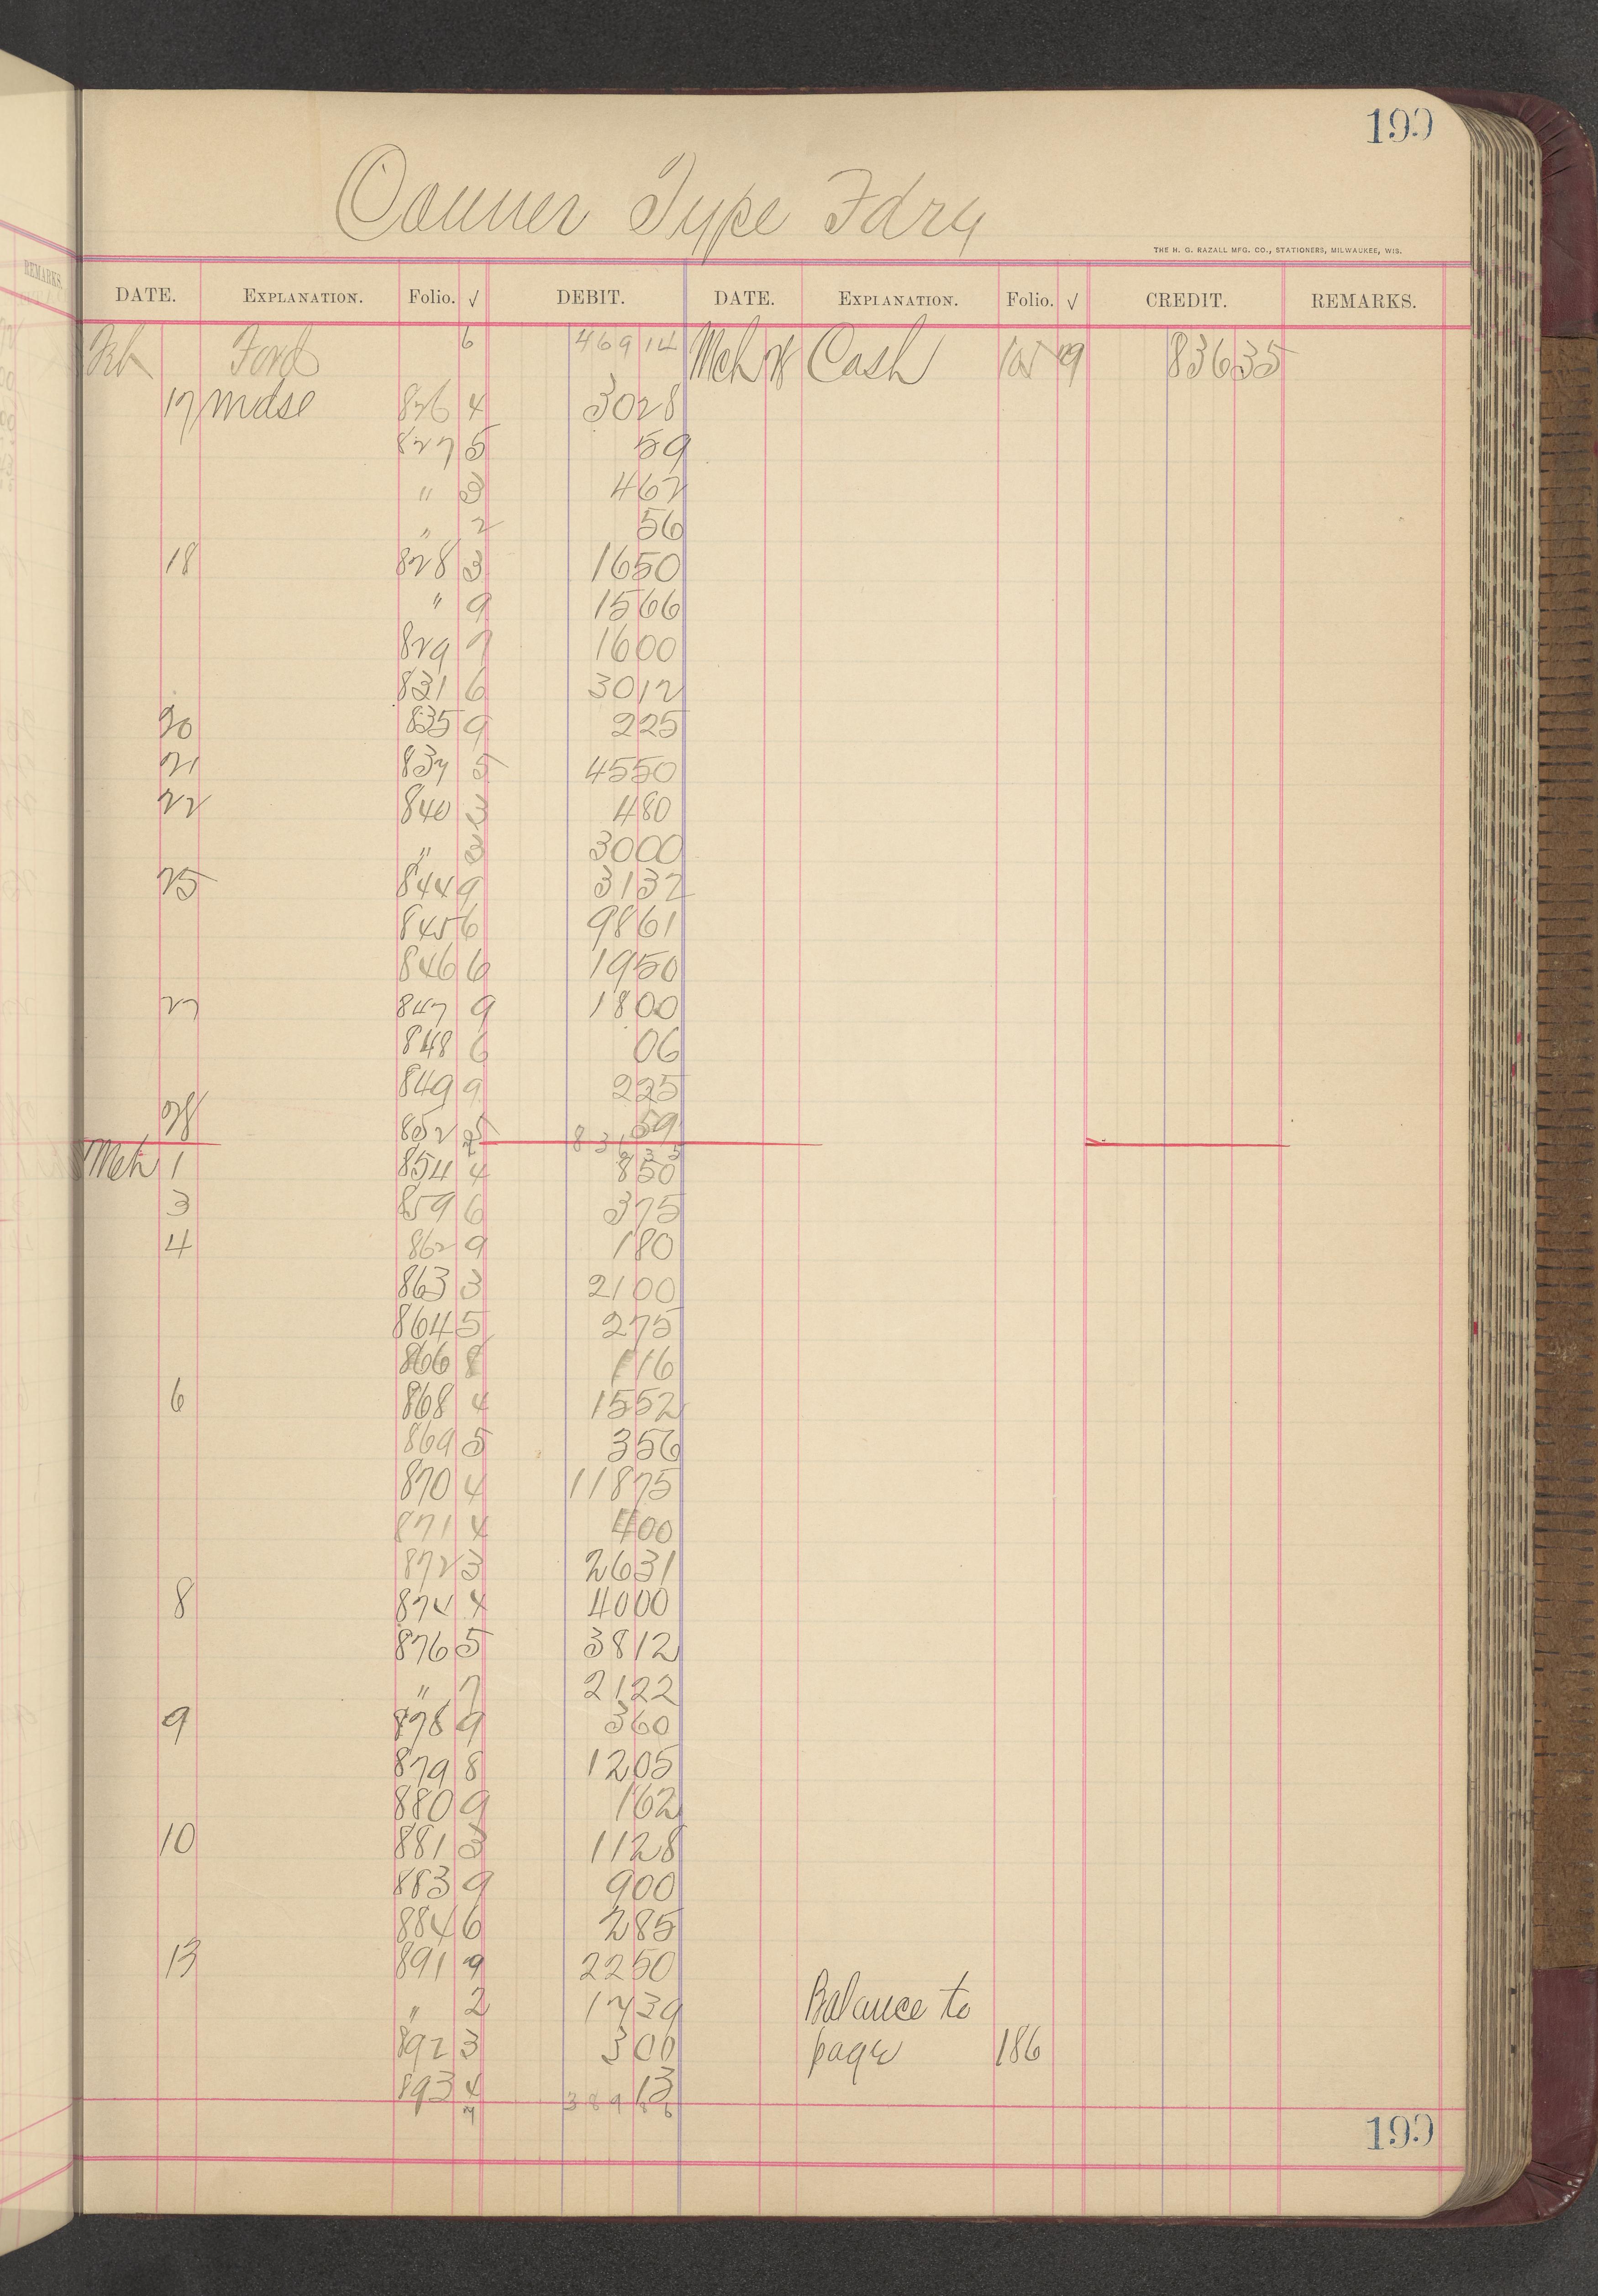 199
Conner Type Fdry
THE H. G. RAZALL MFG. CO., STATIONERS, MILWAUKEE, WIS.
DATE. EXPLANATION. Folio. √ DEBIT. DATE. EXPLANATION. Folio. √ CREDIT. REMARKS.
Feb Ford 6 469 14 Mch 28 Cash 105 9 836 35
17 Mdse 826 4 30 28
827 5 59
" 3 4 62
" 2 56
18 828 3 16 50
" 9 15 66
829 7 16 00
831 6 30 12
20 835 9 2 25
21 837 5 45 50
22 840 3 4 80
" 3 30 00
25 844 9 31 32
845 6 98 61
846 6 19 50
27 847 9 18 00
848 6 06
849 9 2 25
28 852 5 59
836 35
Mch 1 854 4 8 50
3 859 6 3 75
4 862 9 1 80
863 3 21 00
864 5 2 75
866 8 1 16
6 868 4 15 52
869 5 3 56
870 4 118 75
871 4 4 00
872 3 26 31
8 874 4 40 00
876 5 38 12
" 7 21 22
9 878 9 3 60
879 8 12 05
880 9 1 62
10 881 3 11 28
883 9 9 00
884 6 2 85
13 891 9 22 50
" 2 17 39 Balance to
892 3 3 00 page 186
893 4 13
7 389 86
199